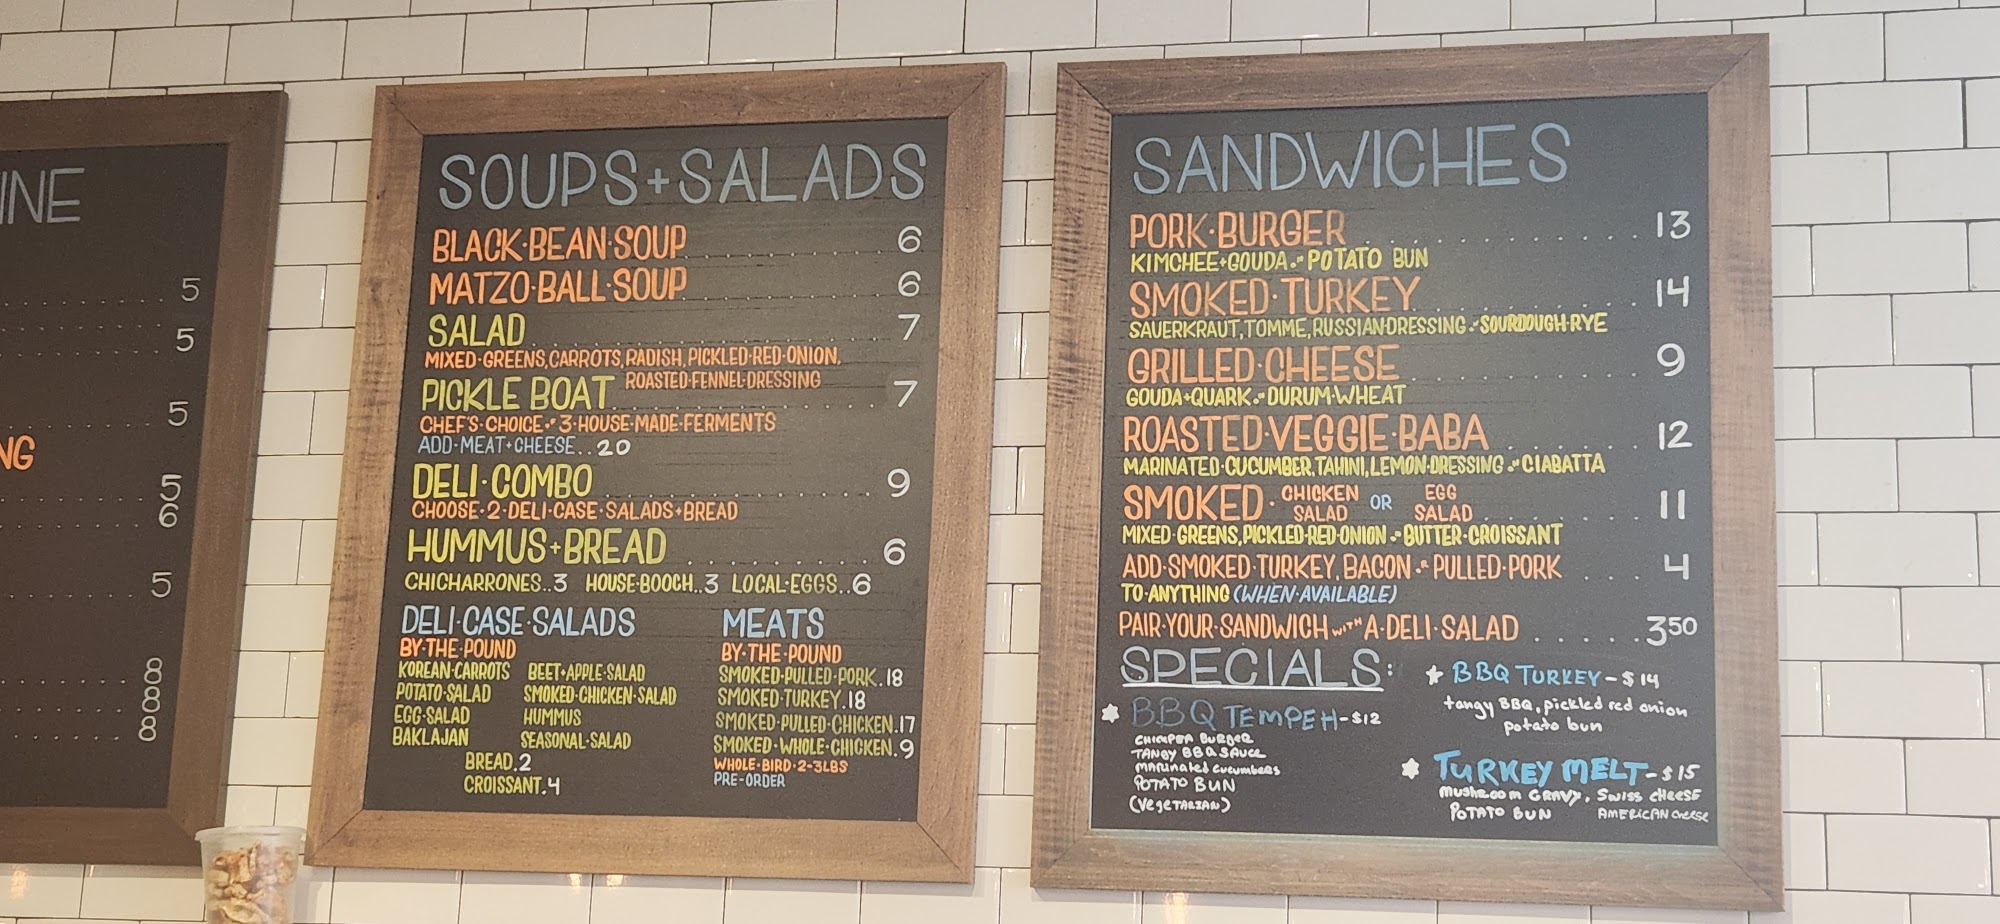 INE
5
5
5
NG
5
6
5
8
8
8
SOUPS+SALADS
BLACK·BEAN·SOUP 6
MATZO·BALL·SOUP 6
SALAD 7
MIXED·GREENS, CARROTS, RADISH, PICKLED·RED·ONION,
ROASTED·FENNEL·DRESSING
PICKLE BOAT 7
CHEF'S·CHOICE·3·HOUSE·MADE·FERMENTS
ADD·MEAT+CHEESE..20
DELI·COMBO 9
CHOOSE·2·DELI·CASE·SALADS+BREAD
HUMMUS+BREAD 6
CHICHARRONES..3 HOUSE·BOOCH..3 LOCAL·EGGS..6
DELI·CASE·SALADS
BY·THE·POUND
KOREAN·CARROTS BEET+APPLE·SALAD
POTATO·SALAD SMOKED·CHICKEN·SALAD
EGG·SALAD HUMMUS
BAKLAJAN SEASONAL·SALAD
BREAD.2
CROISSANT.4
MEATS
BY·THE·POUND
SMOKED·PULLED·PORK.18
SMOKED·TURKEY.18
SMOKED·PULLED·CHICKEN.17
SMOKED·WHOLE·CHICKEN.9
WHOLE·BIRD·2-3LBS
PRE-ORDER
SANDWICHES
PORK·BURGER 13
KIMCHEE+GOUDA·POTATO BUN
SMOKED·TURKEY 14
SAUERKRAUT, TOMME, RUSSIAN·DRESSING·SOURDOUGH·RYE
GRILLED·CHEESE 9
GOUDA+QUARK·DURUM·WHEAT
ROASTED·VEGGIE·BABA 12
MARINATED·CUCUMBER, TAHINI, LEMON·DRESSING·CIABATTA
SMOKED·CHICKEN SALAD OR EGG SALAD 11
MIXED·GREENS, PICKLED·RED·ONION·BUTTER·CROISSANT
ADD·SMOKED·TURKEY, BACON·PULLED·PORK 4
TO·ANYTHING (WHEN·AVAILABLE)
PAIR·YOUR·SANDWICH WITH A·DELI·SALAD 3⁵⁰
SPECIALS:
BBQ TEMPEH-$12
BURGER
TANGY BBQ SAUCE
MARINATED CUCUMBERS
POTATO BUN
(VEGETARIAN)
BBQ TURKEY-$14
tangy BBQ, pickled red onion
potato bun
TURKEY MELT-$15
MUSHROOM GRAVY, SWISS CHEESE
POTATO BUN AMERICAN CHEESE